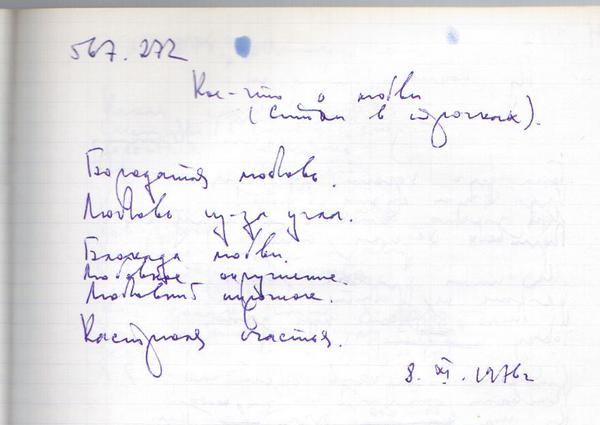 567.272
Кое-что о любви
(Стихи в строчках).
Бородатая любовь.
Любовь из-за угла.
Блокада любви.
Любовное окружение.
Любовный
Кастрюля счастья.
8. XI. 1976г